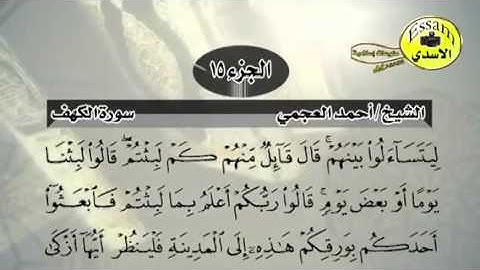 Essam
الأسدي
الجزء ١٥
الشيخ/أحمد العجمي
سورة الكهف
لِيَتَسَآءَلُوا۟ بَيْنَهُمْ ۚ قَالَ قَآئِلٌ مِّنْهُمْ كَمْ لَبِثْتُمْ ۖ قَالُوا۟ لَبِثْنَا
يَوْمًا أَوْ بَعْضَ يَوْمٍ ۚ قَالُوا۟ رَبُّكُمْ أَعْلَمُ بِمَا لَبِثْتُمْ فَٱبْعَثُوٓا۟
أَحَدَكُم بِوَرِقِكُمْ هَٰذِهِۦٓ إِلَى ٱلْمَدِينَةِ فَلْيَنظُرْ أَيُّهَآ أَزْكَىٰ